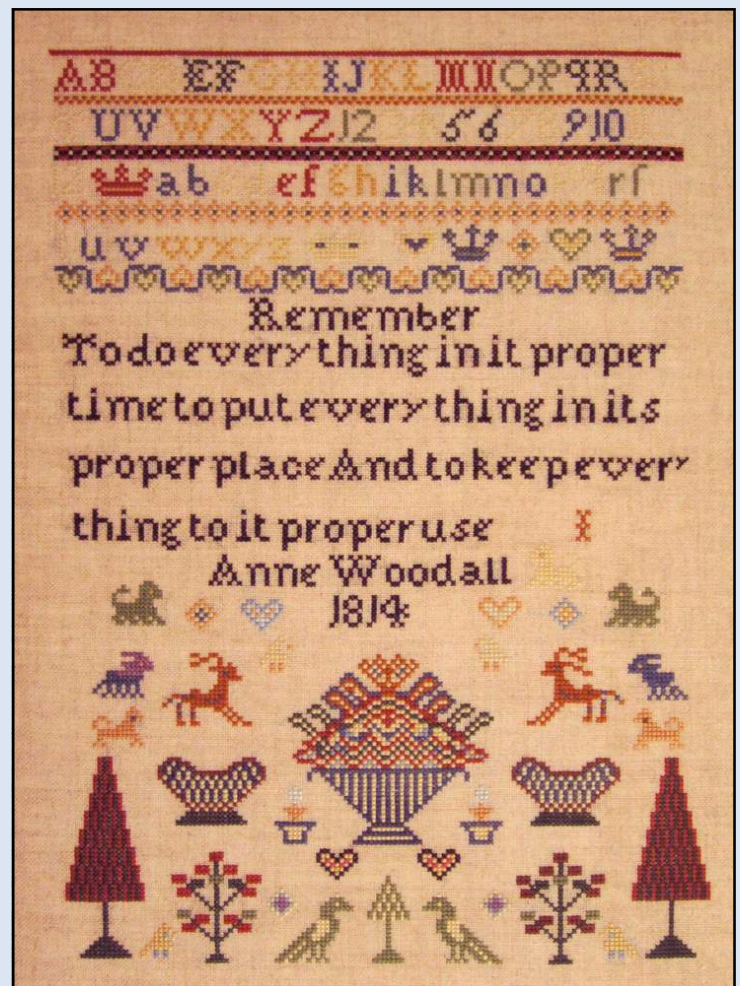 AB EFGHIJKLMNOPQR
UVWXYZ12 56 910
ab efghiklmno rſ
uvwxyz
Remember
To do every thing in it proper
time to put every thing in its
proper place And to keep every
thing to it proper use
Anne Woodall
1814